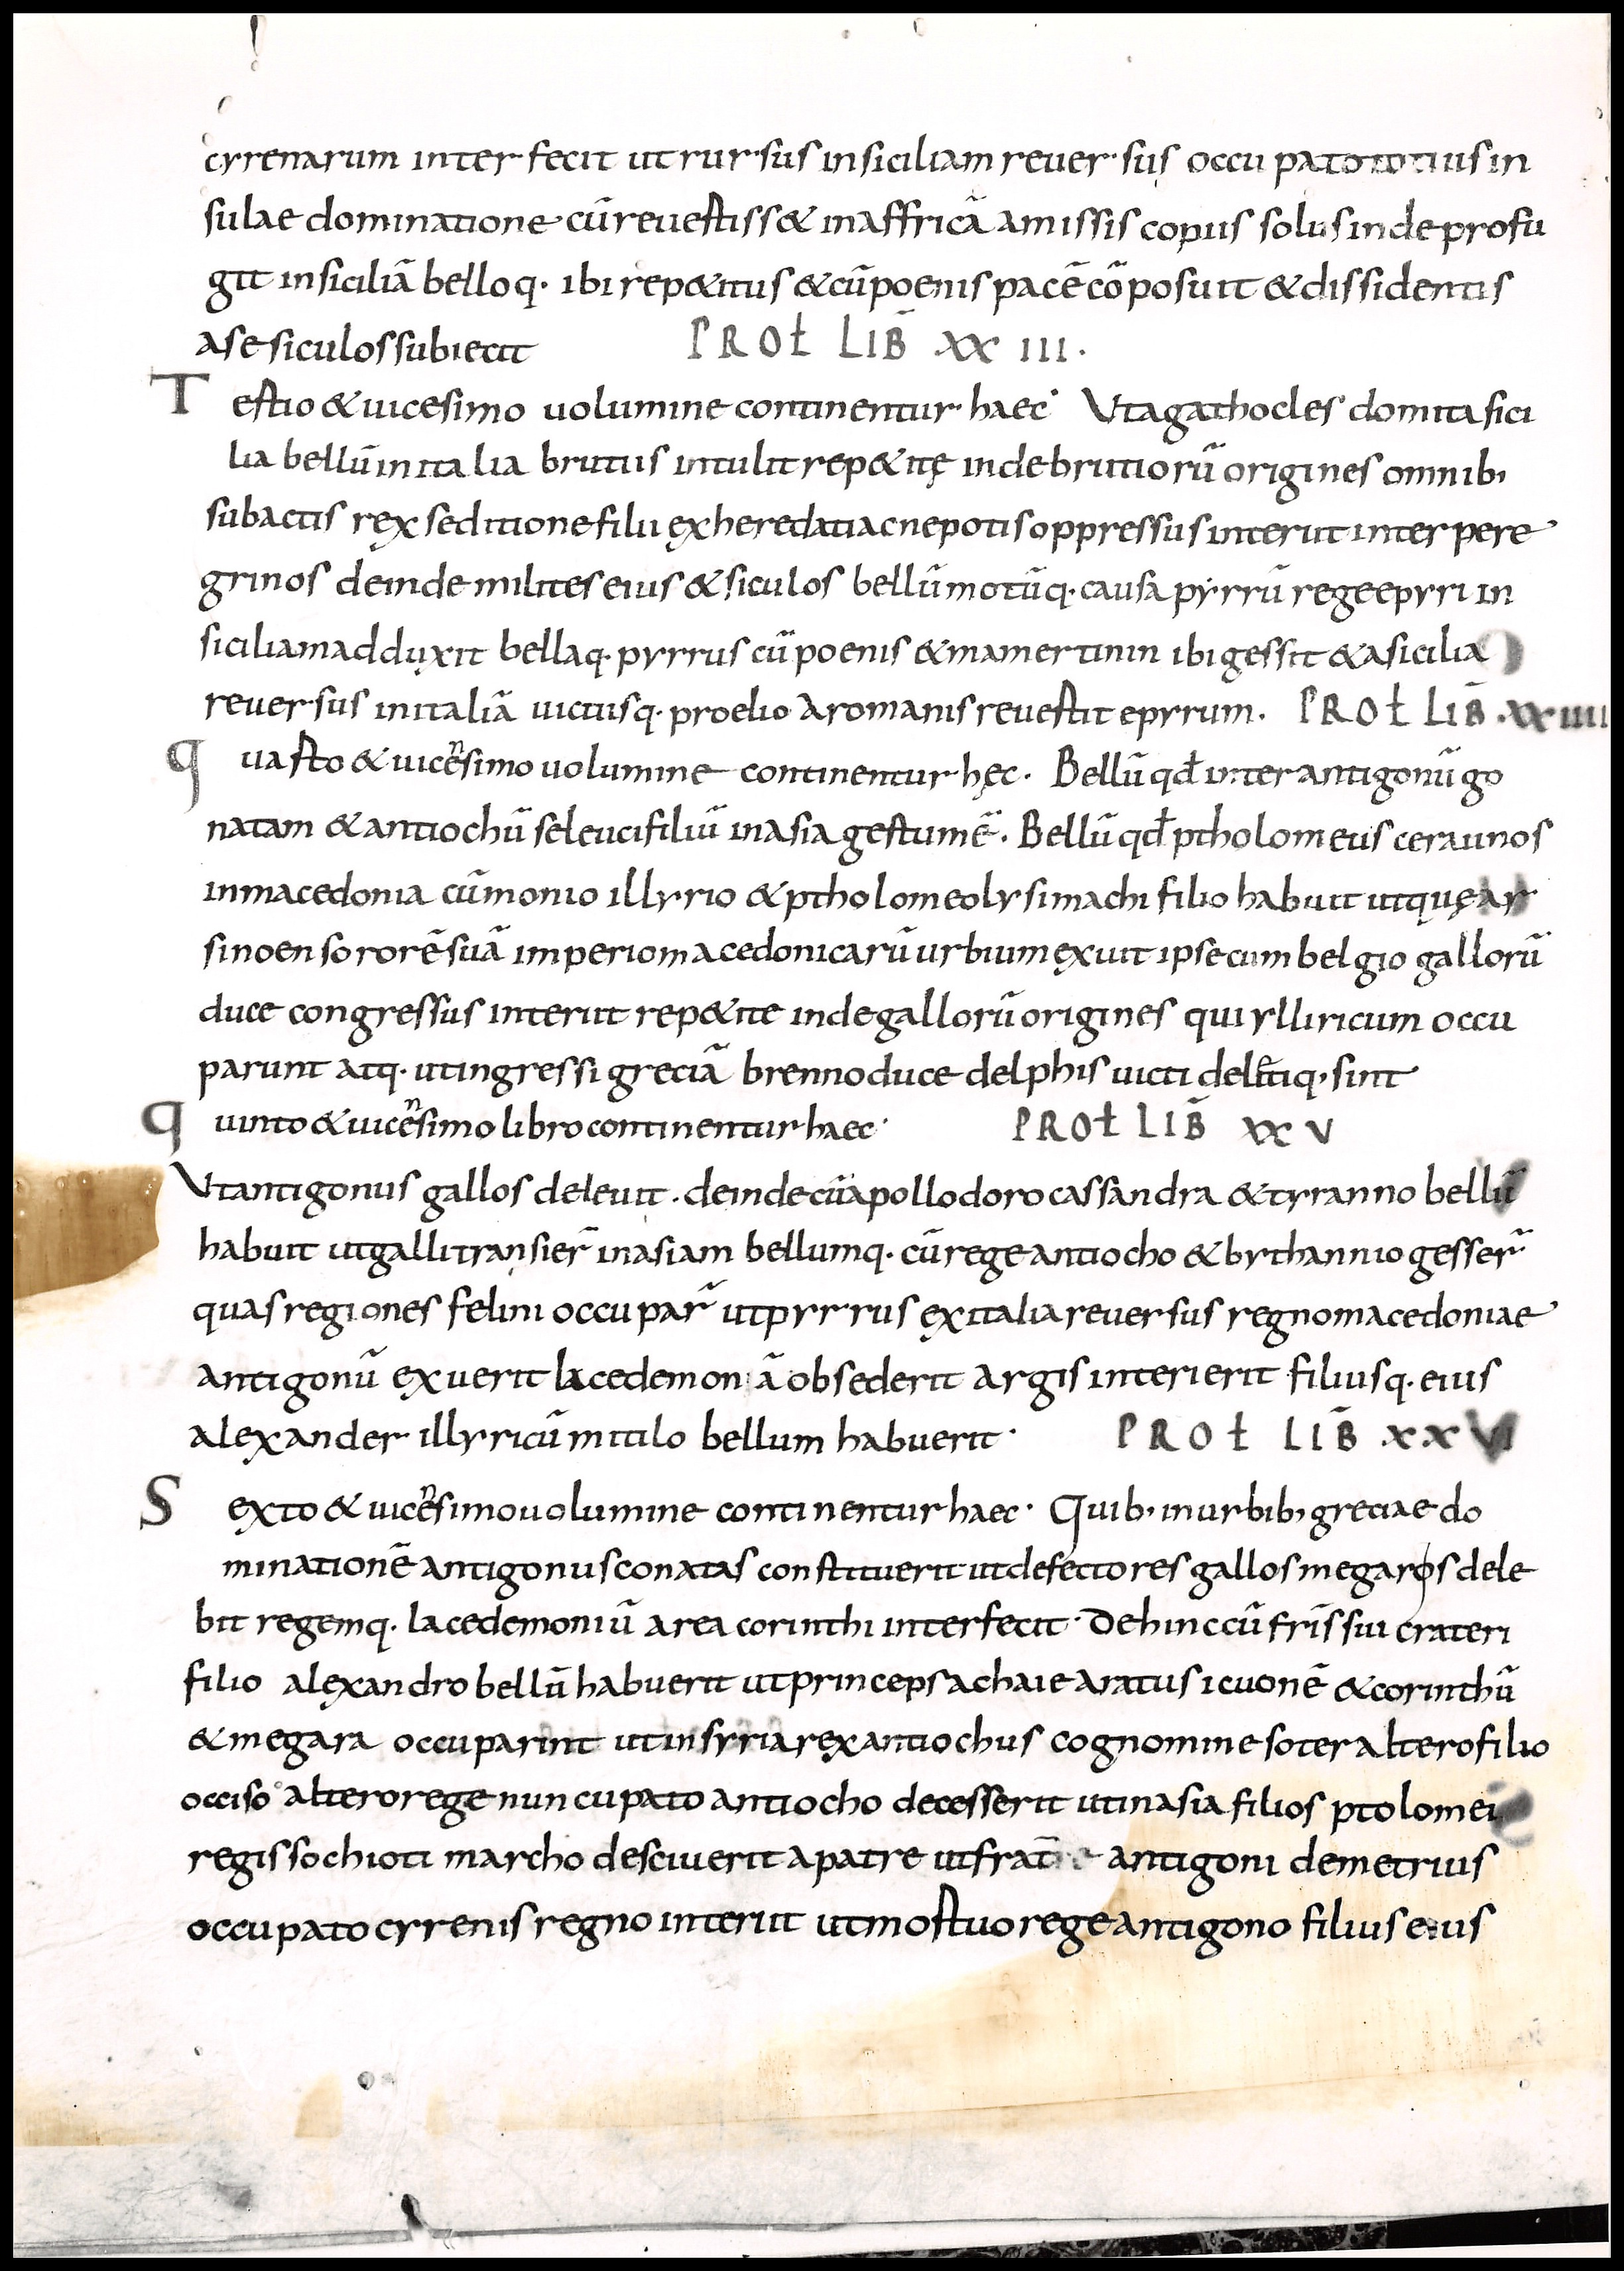 cyrenarum interfecit ut rursus insiciliam reuersus occupato totius in
sulae dominatione cū reuestiss& inaffricā amissis copiis solus inde profu
git insiciliā belloq· ibi rep&itus &cū poenis pacē cōposuit &dissidentis
ase siculos subiecit PROŁ LIB̄ XXIII·
Testio &uicesimo uolumine continentur haec Vtagathocles domita sici
lia bellū initalia brutiis intulit rep&itę inde brutiorū origines omnib;
subactis rex seditione filii exheredatiac nepotis oppressus interiit inter pere
grinos deinde milites eius &siculos bellū motūq· causa pyrrū rege epyri in
siciliam adduxit bellaq· pyrrus cū poenis &mamertinin ibi gessit &asicilia
reuersus initaliā uictusq· proelio aromanis reuestit epyrum· PROŁ LIB̄ XXIIII
quasto &uicēsimo uolumine continentur hęc· Bellū qđ inter antigonū go
natam &antiochū seleuci filiū inasia gestum ē· Bellū qđ ptholomeus ceraunos
inmacedonia cū monio illyrio &ptholomeo lysimachi filio habuit utquę ar
sinoen sororē suā imperio macedonicarū urbium exuit ipse cum belgio gallorū
duce congressus interiit rep&ite inde gallorū origines qui ylliricum occu
parunt atq· utingressi greciā brenno duce delphis uicti delētiq· sint
quinto &uicēsimo libro continentur haec· PROŁ LIB̄ XXV
Vtantigonus gallos deleuit· deinde cū apollodoro cassandra &tyranno bellū
habuit utgalli transier̄ inasiam bellumq· cū rege antiocho &bythannio gesser̄
quas regiones felini occupar̄ utpyrrus ex italia reuersus regno macedoniae
antigonū exuerit lacedemoniā obsederit argis interierit filiusq· eius
alexander illyricū mitilo bellum habuerit· PROŁ LIB̄ XXVI
Sexto &uicēsimo uolumine continentur haec· Quib; inurbib; greciae do
minationē antigonus conatas constituerit utdefectores gallos megaros dele
bit regemq· lacedemoniū area corinthi interfecit· Dehinc cū fr̄is sui crateri
filio alexandro bellū habuerit utprinceps achaie aratus icuonē &corinthū
&megara occuparint utinsyria rex antiochus cognomine soter altero filio
occiso altero rege nuncupato antiocho decesserit utinasia filios ptolomei
regis sochioti marcho desciuerit apatre utfratre antigoni demetrius
occupato cyrenis regno interiit utmostuo rege antigono filius eius